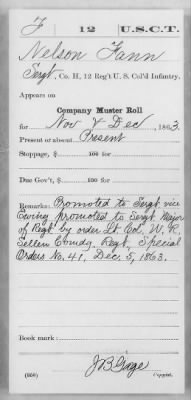 F 12 U.S.C.T.
Nelson Fann
Sergt., Co. H, 12 Reg't U. S. Col'd Infantry.
Appears on
Company Muster Roll
for Nov & Dec, 1863.
Present or absent Present
Stoppage, $ 100 for
Due Gov't, $ 100 for
Remarks: Promoted to Sergt vice
Ewing promoted to Sergt Major
of Regt by order Lt Col. W. R.
Sellon Comdg. Regt. Special
Orders No. 41, Dec. 5, 1863.
Book mark:
J B Gage
(359) Copyist.